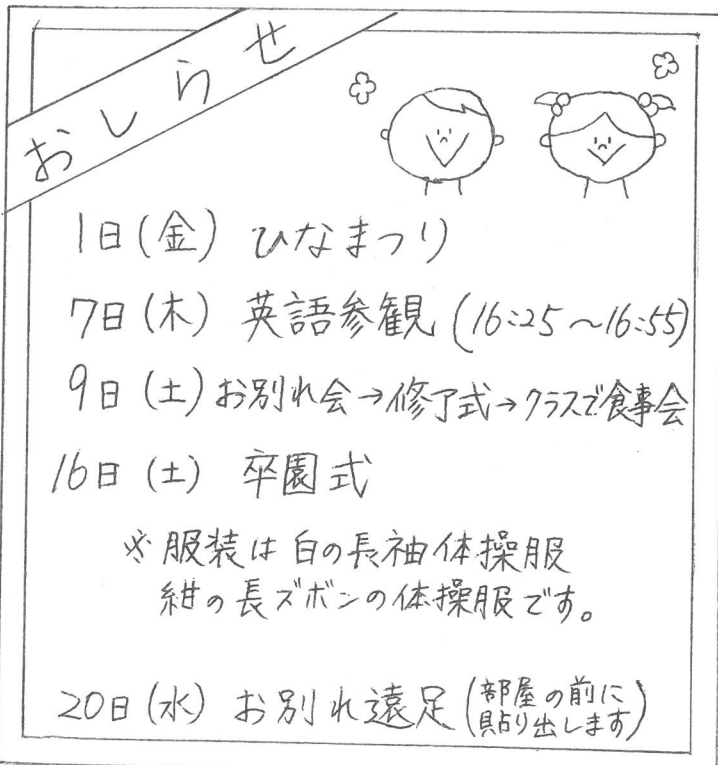 おしらせ
1日(金) ひなまつり
7日(木) 英語参観(16:25～16:55)
9日(土)お別れ会→修了式→クラスで食事会
16日(土) 卒園式
※服装は白の長袖体操服
紺の長ズボンの体操服です。
20日(水) お別れ遠足(部屋の前に
貼り出します)